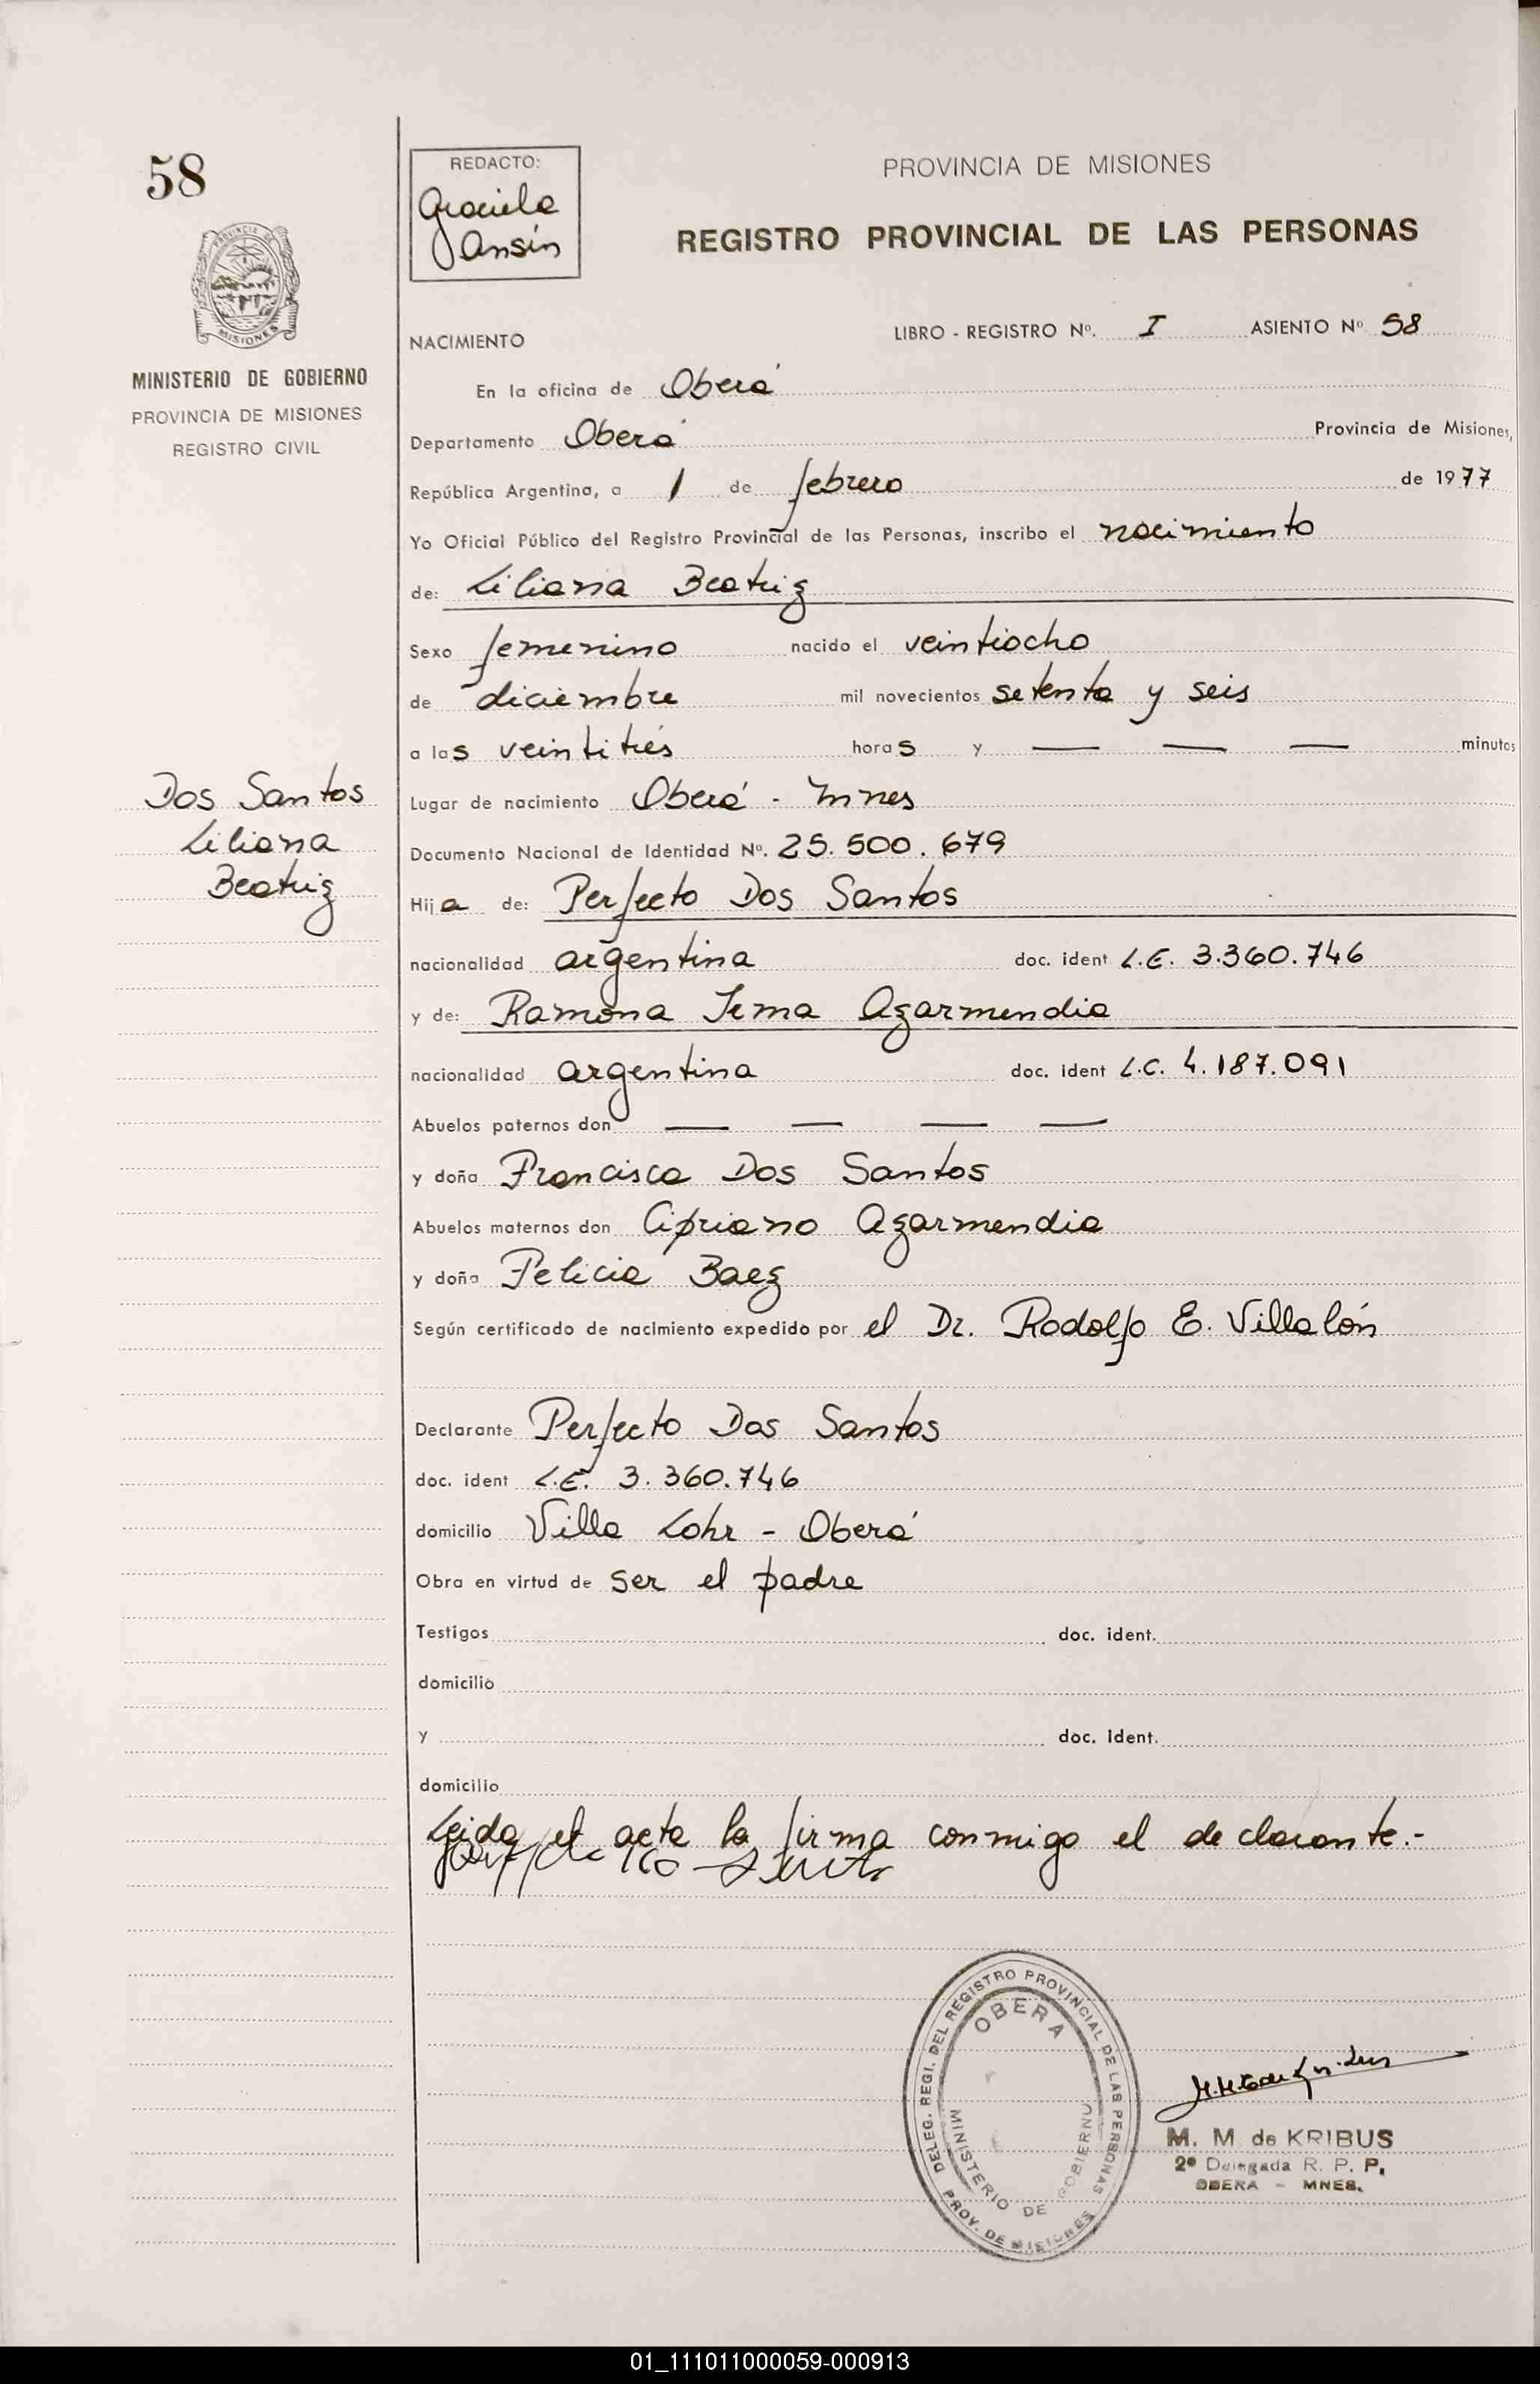 58
REDACTO:
Graciela
Ansín
PROVINCIA DE MISIONES
REGISTRO PROVINCIAL DE LAS PERSONAS
PROVINCIA DE
MISIONES
MINISTERIO DE GOBIERNO
PROVINCIA DE MISIONES
REGISTRO CIVIL
NACIMIENTO
LIBRO - REGISTRO Nº. I ASIENTO Nº 58
En la oficina de Oberá
Departamento Oberá Provincia de Misiones,
República Argentina, a 1 de febrero de 1977
Yo Oficial Público del Registro Provincial de las Personas, inscribo el nacimiento
de: Liliana Beatriz
Sexo femenino nacido el veintiocho
de diciembre mil novecientos setenta y seis
a las veintitrés horas y — — — minutos
Dos Santos
Liliana
Beatriz
Lugar de nacimiento Oberá - Mnes
Documento Nacional de Identidad Nº. 25.500.679
Hija de: Perfecto Dos Santos
nacionalidad argentina doc. ident L.E. 3.360.746
y de: Ramona Irma Azarmendia
nacionalidad argentina doc. ident L.C. 4.187.091
Abuelos paternos don — — — —
y doña Francisca Dos Santos
Abuelos maternos don Cipriano Azarmendia
y doña Felicia Baez
Según certificado de nacimiento expedido por el Dr. Rodolfo E. Villalón
Declarante Perfecto Dos Santos
doc. ident L.E. 3.360.746
domicilio Villa Lohr - Oberá
Obra en virtud de ser el padre
Testigos doc. ident.
domicilio
y doc. ident.
domicilio
Leida el acta la firma conmigo el declarante.-
DELEG. REGI. DEL REGISTRO PROVINCIAL DE LAS PERSONAS
OBERA
MINISTERIO DE GOBIERNO
PROV. DE MISIONES
M. M de KRIBUS
2º Delegada R. P. P.
OBERA - MNES.
01_111011000059-000913